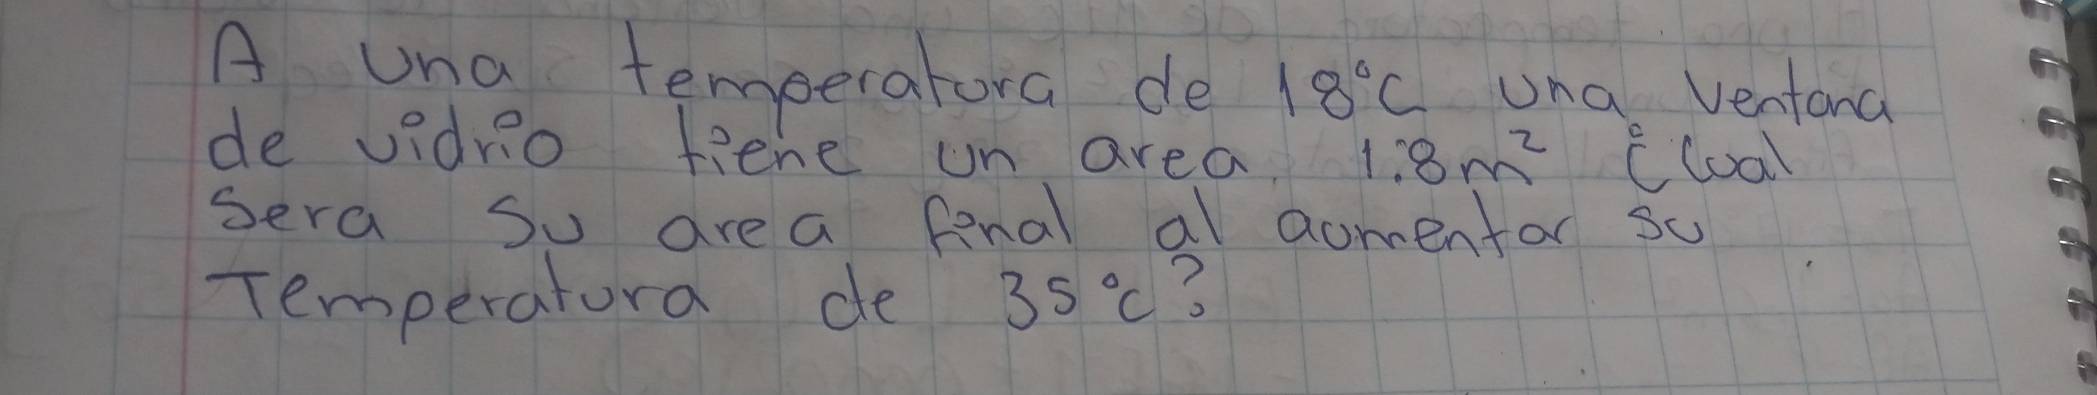 A una temperatura de 18°C una ventana
de vidrio tiene un area 1.8m² ¿Cual
sera su area final al aumentar su
Temperatura de 35°c?